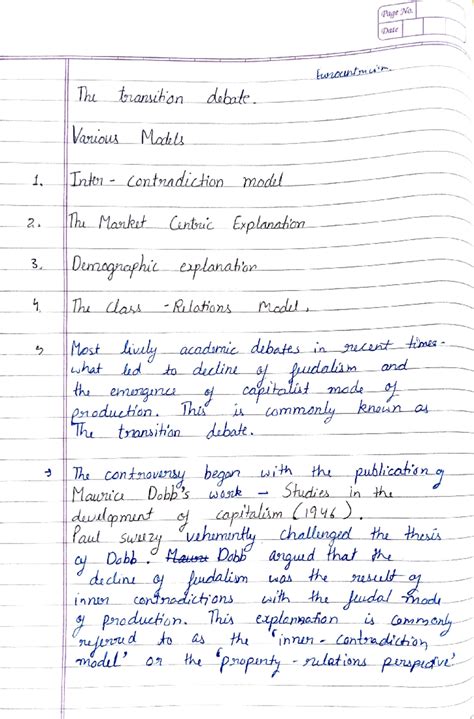 Page No.
Date
Eurocentricism.
The transition debate.
Various Models
1. Inter - contradiction model
2. The Market Centric Explanation
3. Demographic explanation
4. The Class - Relations Model.
→ Most lively academic debates in recent times -
what led to decline of feudalism and
the emergence of capitalist mode of
production. This is commonly known as
The transition debate.
→ The controversy began with the publication of
Maurice Dobb's work - Studies in the
development of capitalism (1946).
Paul Sweezy vehemently challenged the thesis
of Dobb. Dobb argued that the
decline of feudalism was the result of
inner contradictions with the feudal mode
of production. This explanation is commonly
referred to as the 'inner - contradiction
model' or the 'property - relations perspective'